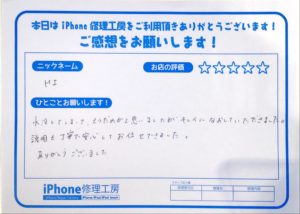 本日は iPhone 修理工房をご利用頂きありがとうございます!
ご感想をお願いします!
ニックネーム
お店の評価 ☆☆☆☆☆
MI
ひとことお願いします!
水没してしまって、もうだめかと思いましたが、キレイになおしていただきました。
説明も丁寧で安心してお任せできました。
ありがとうございました
iPhone修理工房